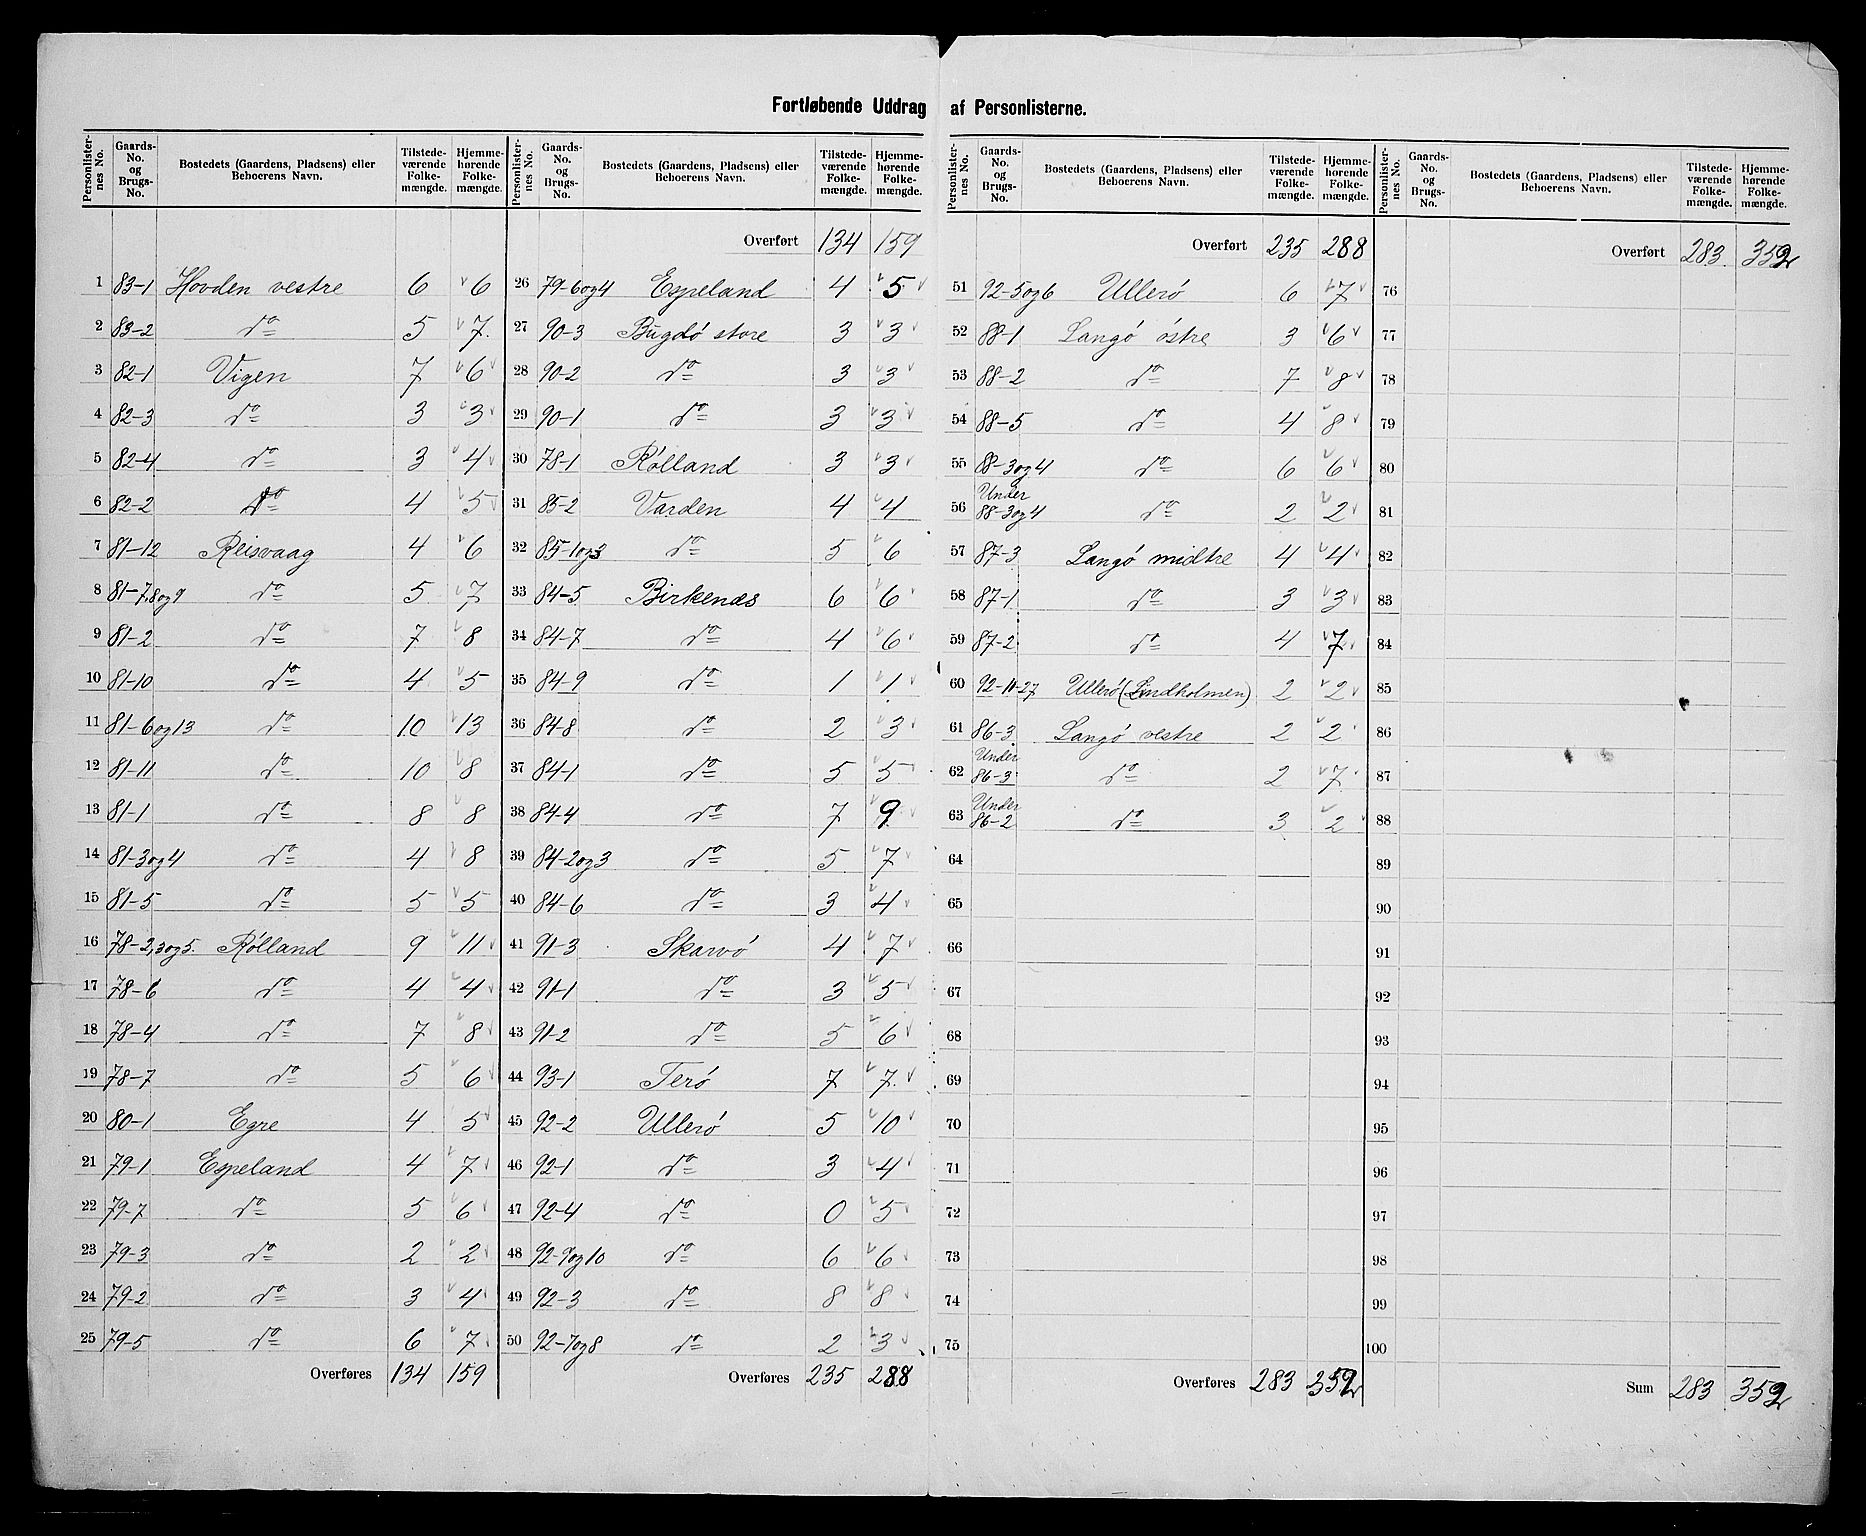 Fortløbende Uddrag af Personlisterne.
Personlister-nes No. | Gaards-No. og Brugs-No. | Bostedets (Gaardens, Pladsens) eller Beboerens Navn. | Tilstede-værende Folke-mængde. | Hjemme-hørende Folke-mængde.
1 83-1 Hovden vestre 6 6
2 83-2 do 5 7
3 82-1 Vigen 7 6
4 82-3 do 3 3
5 82-4 do 3 4
6 82-2 do 4 5
7 81-12 Reisvaag 4 6
8 81-7,8og9 do 5 7
9 81-2 do 7 8
10 81-10 do 4 5
11 81-6og13 do 10 13
12 81-11 do 10 8
13 81-1 do 8 8
14 81-3og4 do 4 8
15 81-5 do 5 5
16 78-2,3og5. Rølland 9 11
17 78-6 do 4 4
18 78-4 do 7 8
19 78-7 do 5 6
20 80-1 Egre 4 5
21 79-1 Espeland 4 7
22 79-7 do 5 6
23 79-3 do 2 2
24 79-2 do 3 4
25 79-5 do 6 7
Overføres 134 159
Personlister-nes No. | Gaards-No. og Brugs-No. | Bostedets (Gaardens, Pladsens) eller Beboerens Navn. | Tilstede-værende Folke-mængde. | Hjemme-hørende Folke-mængde.
Overført 134 159
26 79-6og4 Espeland 4 5
27 90-3 Bugdø store 3 3
28 90-2 do 3 3
29 90-1 do 3 3
30 78-1 Rølland 3 3
31 85-2 Varden 4 4
32 85-1og3 do 5 6
33 84-5 Birkenæs 6 6
34 84-7 do 4 6
35 84-9 do 1 1
36 84-8 do 2 3
37 84-1 do 5 5
38 84-4 do 7 9
39 84-2og3 do 5 7
40 84-6 do 3 4
41 91-3 Skarvø 4 7
42 91-1 do 3 5
43 91-2 do 5 6
44 93-1 Terø 7 7
45 92-2 Ullerø 5 10
46 92-1 do 3 4
47 92-4 do 0 5
48 92-9og10 do 6 6
49 92-3 do 8 8
50 92-7og8 do 2 3
Overføres 235 288
Personlister-nes No. | Gaards-No. og Brugs-No. | Bostedets (Gaardens, Pladsens) eller Beboerens Navn. | Tilstede-værende Folke-mængde. | Hjemme-hørende Folke-mængde.
Overført 235 288
51 92-5og6 Ullerø 6 7
52 88-1 Langø østre 3 6
53 88-2 do 7 8
54 88-5 do 4 8
55 88-3og4 do 6 6
56 Under 88-3og4 do 2 2
57 87-3 Langø midtre 4 4
58 87-1 do 3 3
59 87-2 do 4 7
60 92-11-27 Ullerø (Lindholmen) 2 2
61 86-3 Langø vestre 2 2
62 Under 86-3 do 2 7
63 Under 86-2 do 3 2
64
65
66
67
68
69
70
71
72
73
74
75
Overføres 283 352
Personlister-nes No. | Gaards-No. og Brugs-No. | Bostedets (Gaardens, Pladsens) eller Beboerens Navn. | Tilstede-værende Folke-mængde. | Hjemme-hørende Folke-mængde.
Overført 283 352
76
77
78
79
80
81
82
83
84
85
86
87
88
89
90
91
92
93
94
95
96
97
98
99
100
Sum 283 352